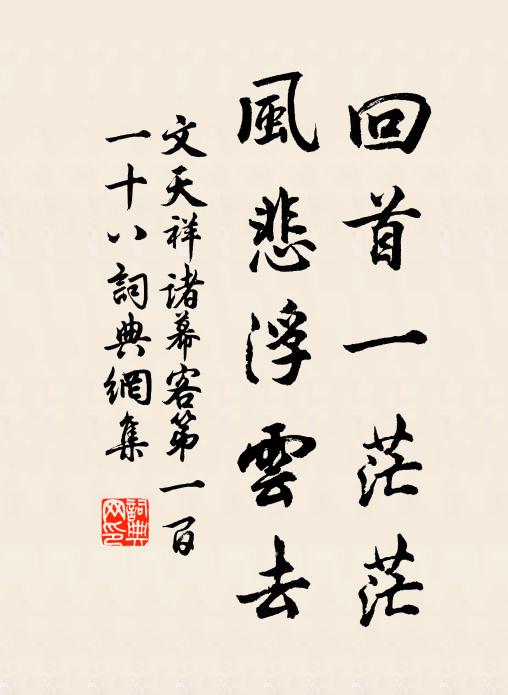 回首一茫茫
風悲浮雲去
文天祥諸幕客第一百
一十八詞典網集
詞典网印